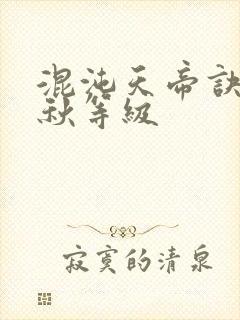 混沌天帝诀
秋等级
寂寞的清泉